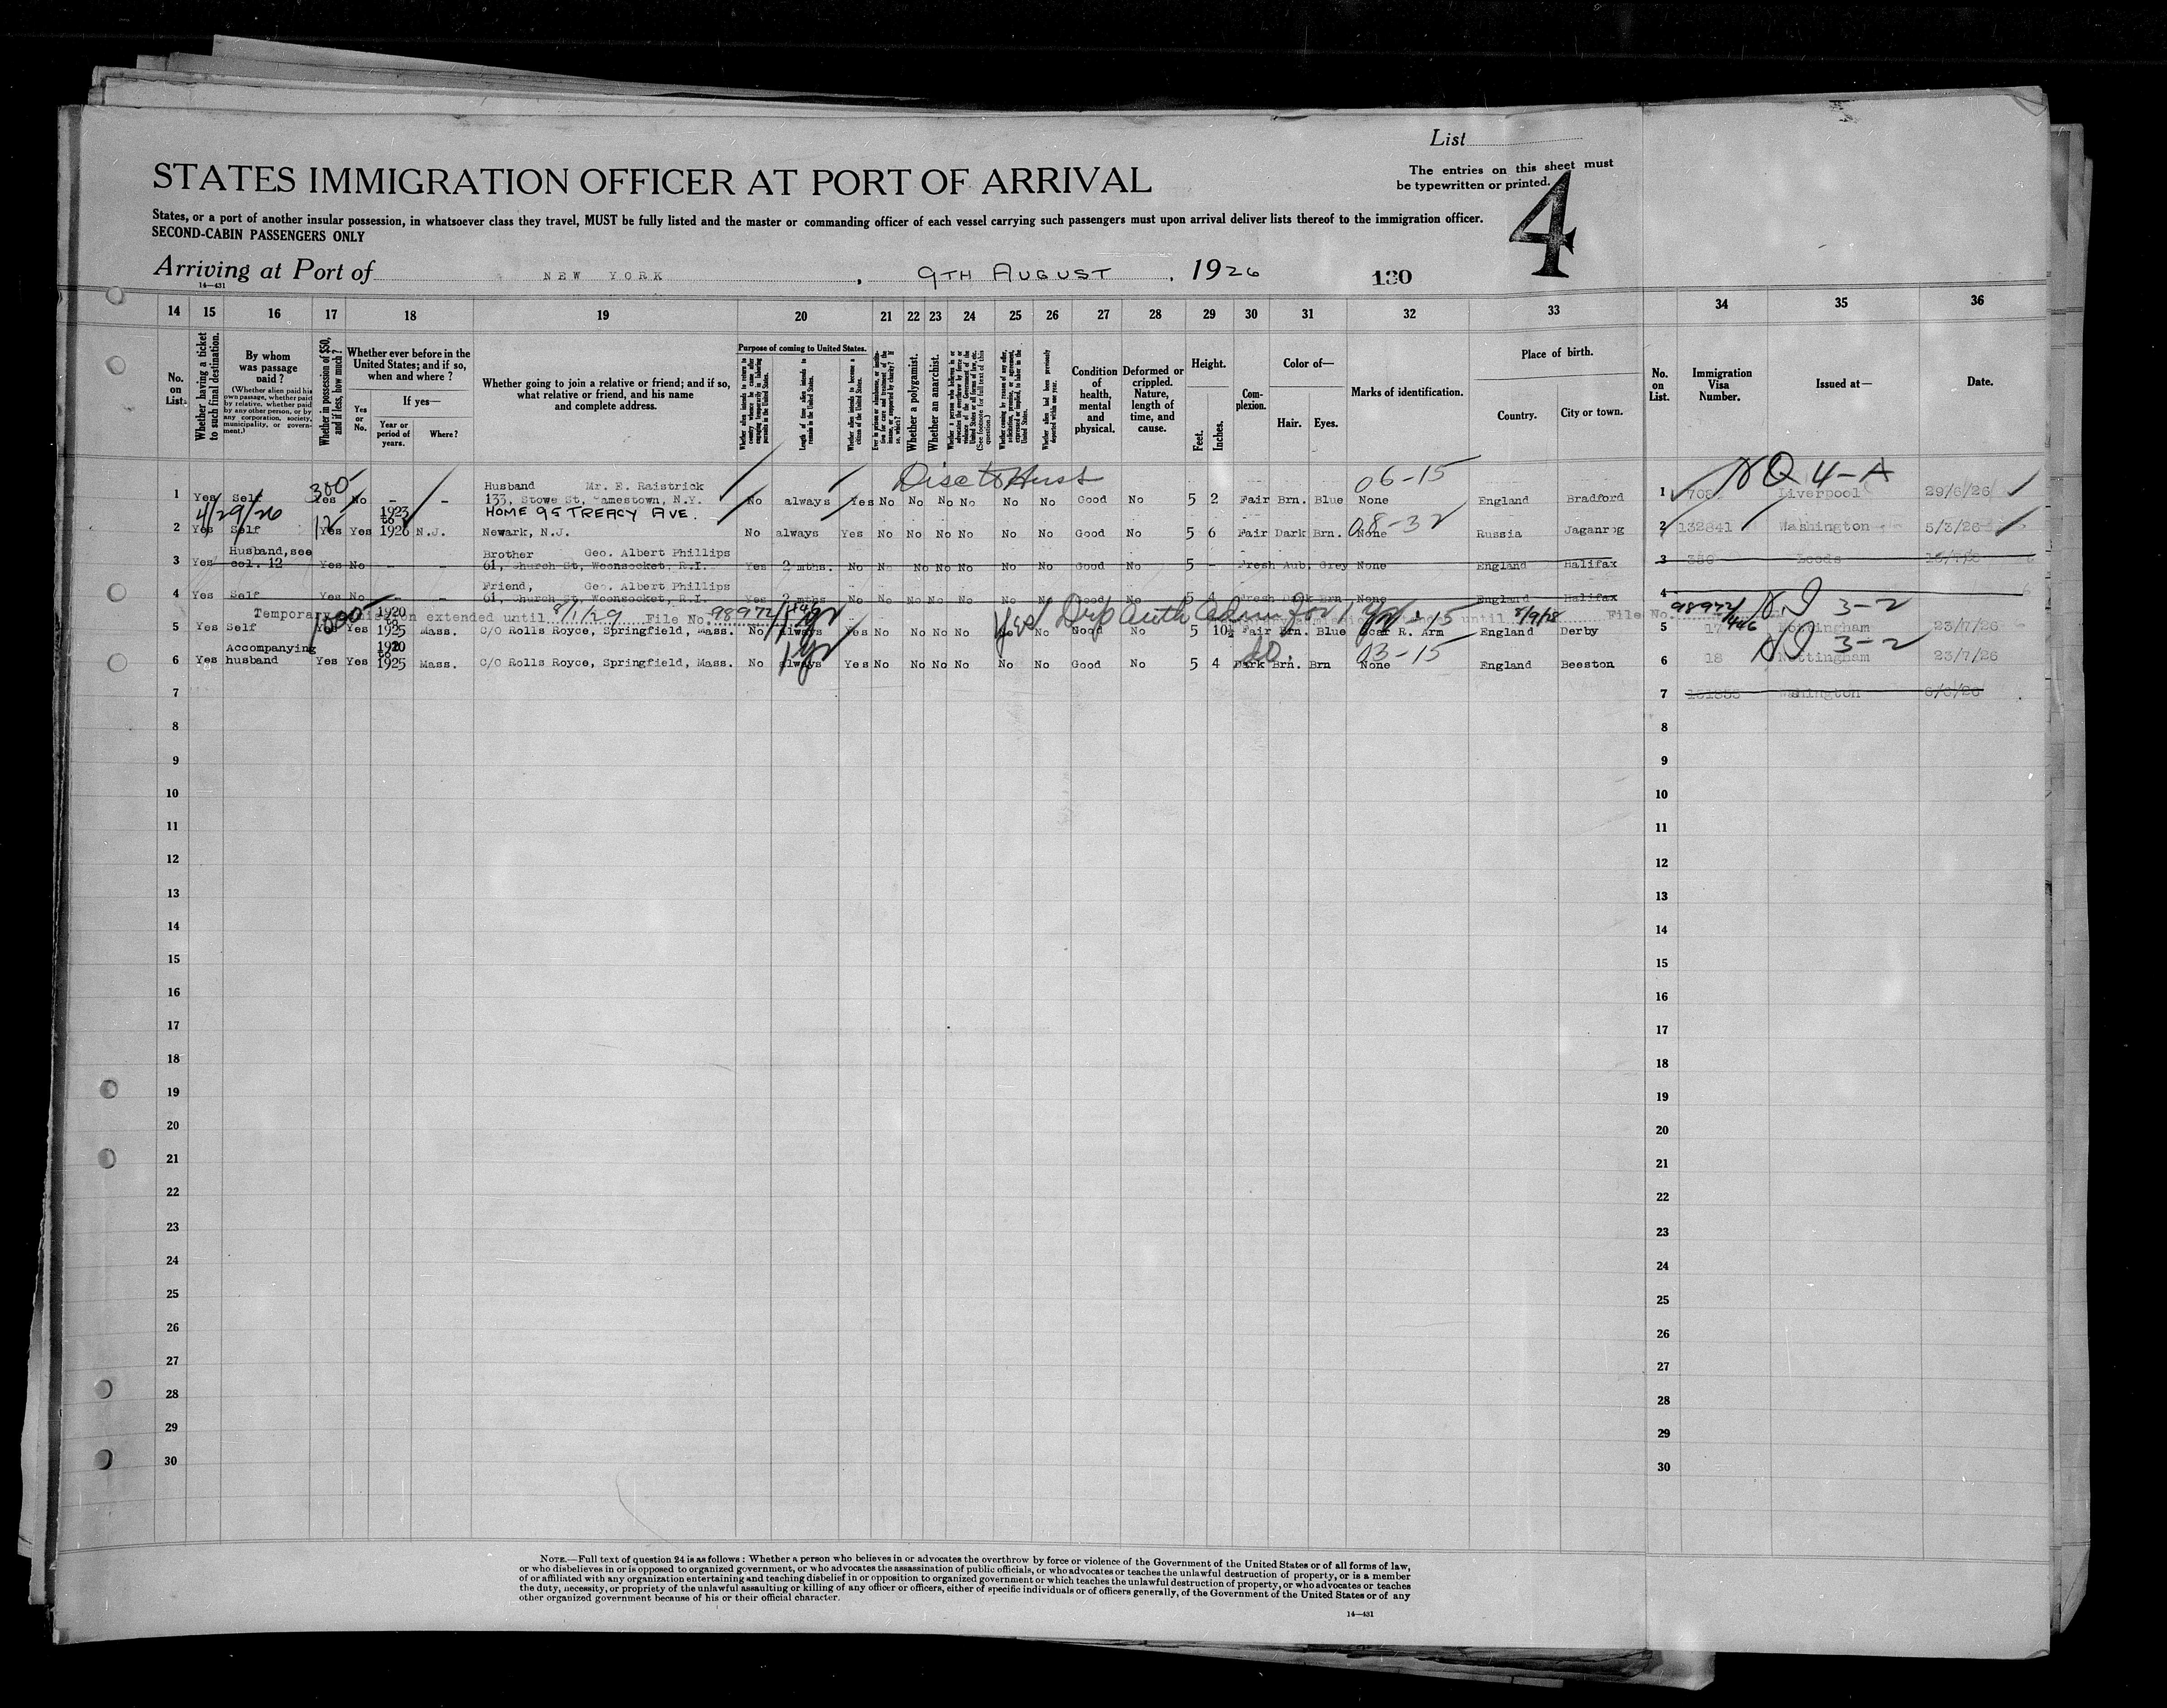 List
The entries on this sheet must
be typewritten or printed.
4
STATES IMMIGRATION OFFICER AT PORT OF ARRIVAL
States, or a port of another insular possession, in whatsoever class they travel, MUST be fully listed and the master or commanding officer of each vessel carrying such passengers must upon arrival deliver lists thereof to the immigration officer.
SECOND-CABIN PASSENGERS ONLY
Arriving at Port of NEW YORK, 9TH AUGUST, 1926 130
14—431
14 15 16 17 18 19 20 21 22 23 24 25 26 27 28 29 30 31 32 33 34 35 36
No. on List.
Whether having a ticket to such final destination.
By whom was passage paid?
(Whether alien paid his own passage, whether paid by relative, whether paid by any other person, or by any corporation, society, municipality, or government.)
Whether in possession of $50, and if less, how much?
Whether ever before in the United States; and if so, when and where?
Yes or No.
If yes—
Year or period of years.
Where?
Whether going to join a relative or friend; and if so, what relative or friend, and his name and complete address.
Purpose of coming to United States.
Whether alien intends to return to country whence he came after engaging temporarily in laboring pursuits in the United States.
Length of time alien intends to remain in the United States.
Whether alien intends to become a citizen of the United States.
Whether a polygamist.
Whether an anarchist.
Condition of health, mental and physical.
Deformed or crippled. Nature, length of time, and cause.
Height.
Feet.
Inches.
Complexion.
Color of—
Hair.
Eyes.
Marks of identification.
Place of birth.
Country.
City or town.
No. on List.
Immigration Visa Number.
Issued at—
Date.
Disc to Husb
06-15
NQ 4-A
300
Husband Mr. E. Raistrick
1 Yes Self Yes No - - 133, Stowe St, Jamestown, N.Y. No always Yes No No No No No No Good No 5 2 Fair Brn. Blue None England Bradford 1 706 Liverpool 29/6/26
4/29/26
HOME 95 TREACY AVE.
1923 to
2 Yes Self 12 Yes Yes 1926 N.J. Newark, N.J. No always Yes No No No No No No Good No 5 6 Fair Dark Brn. None 08-32 Russia Jaganrog 2 132841 Washington 5/3/26
Husband, see Brother Geo. Albert Phillips
3 Yes col. 12 Yes No - - 61, Church St, Woonsocket, R.I. Yes 2 mths. No No No No No No No Good No 5 - Fresh Aub. Grey None England Halifax 3 350 Leeds
Friend, Geo. Albert Phillips
4 Yes Self Yes No - - 61, Church St, Woonsocket, R.I. Yes 2 mths No No No No No No No Good No 5 4 Fresh Dark Brn None England Halifax 4
Temporary admission extended until 8/1/29 File No. 98972/446 until 8/9/28 File No. 98972/446
Yes Dep Auth Admn for 1 yr. NI 3-2
1920 to
5 Yes Self Yes Yes 1925 Mass. C/O Rolls Royce, Springfield, Mass. No always 1 yr Yes No No No No No Good No 5 10½ Fair Brn. Blue Scar R. Arm England Derby 5 17 Nottingham 23/7/26
do. 03-15 NI 3-2
Accompanying 1920 to
6 Yes husband Yes Yes 1925 Mass. C/O Rolls Royce, Springfield, Mass. No always 1 yr Yes No No No No No No Good No 5 4 Dark Brn. Brn None England Beeston 6 18 Nottingham 23/7/26
7 7 Washington 6/6/26
8 8
9 9
10 10
11 11
12 12
13 13
14 14
15 15
16 16
17 17
18 18
19 19
20 20
21 21
22 22
23 23
24 24
25 25
26 26
27 27
28 28
29 29
30 30
NOTE.—Full text of question 24 is as follows: Whether a person who believes in or advocates the overthrow by force or violence of the Government of the United States or of all forms of law,
or who disbelieves in or is opposed to organized government, or who advocates the assassination of public officials, or who advocates or teaches the unlawful destruction of property, or is a member
of or affiliated with any organization entertaining and teaching disbelief in or opposition to organized government or which teaches the unlawful destruction of property, or who advocates or teaches
the duty, necessity, or propriety of the unlawful assaulting or killing of any officer or officers, either of specific individuals or of officers generally, of the Government of the United States or of any
other organized government because of his or their official character.
14—431